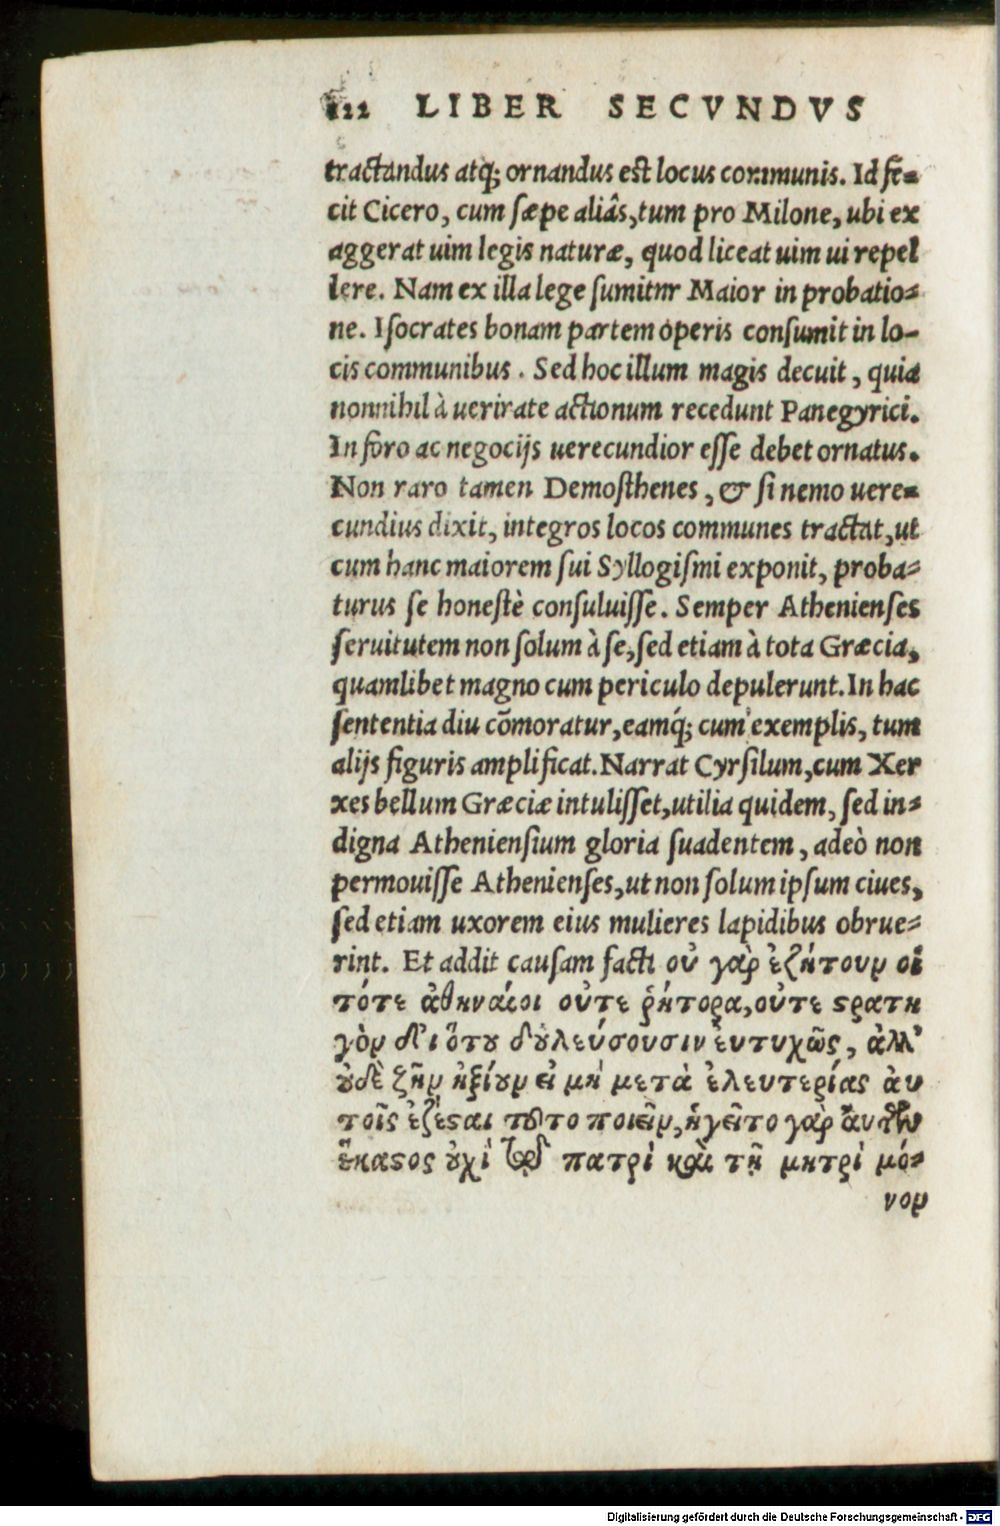 122 LIBER SECVNDVS
tractandus atq; ornandus est locus communis. Id fe=
cit Cicero, cum sæpe aliâs, tum pro Milone, ubi ex
aggerat uim legis naturæ, quod liceat uim ui repel
lere. Nam ex illa lege sumitnr Maior in probatio=
ne. Isocrates bonam partem operis consumit in lo-
cis communibus. Sed hoc illum magis decuit, quia
nonnihil à uerirate actionum recedunt Panegyrici.
In foro ac negocijs uerecundior esse debet ornatus.
Non raro tamen Demosthenes, & si nemo uere=
cundius dixit, integros locos communes tractat, ut
cum hanc maiorem sui Syllogismi exponit, proba=
turus se honestè consuluisse. Semper Athenienses
seruitutem non solum à se, sed etiam à tota Græcia,
quamlibet magno cum periculo depulerunt. In hac
sententia diu cõmoratur, eamq́; cum exemplis, tum
alijs figuris amplificat. Narrat Cyrsilum, cum Xer
xes bellum Græciæ intulisset, utilia quidem, sed in=
digna Atheniensium gloria suadentem, adeò non
permouisse Athenienses, ut non solum ipsum ciues,
sed etiam uxorem eius mulieres lapidibus obrue=
rint. Et addit causam facti οὐ γὰρ ἐζήτουν οἱ
τότε ἀθηναίοι οὔτε ῥήτορα, οὔτε ϛρατη
γὸν δι' ὅτου δουλεύσουσιν ἐυτυχῶς, ἀλλ'
οὐδὲ ζῆν ἠξίουν εἰ μὴ μετὰ ἐλευτερίας ἀυ
τοῖς ἐζέϛαι τοῦτο ποιεῖν, ἡγεῖτο γὰρ ἀυτῶν
ἕκαϛος οὐχὶ τῷ πατρὶ καὶ τῇ μητρὶ μό=
νον
Digitalisierung gefördert durch die Deutsche Forschungsgemeinschaft - DFG